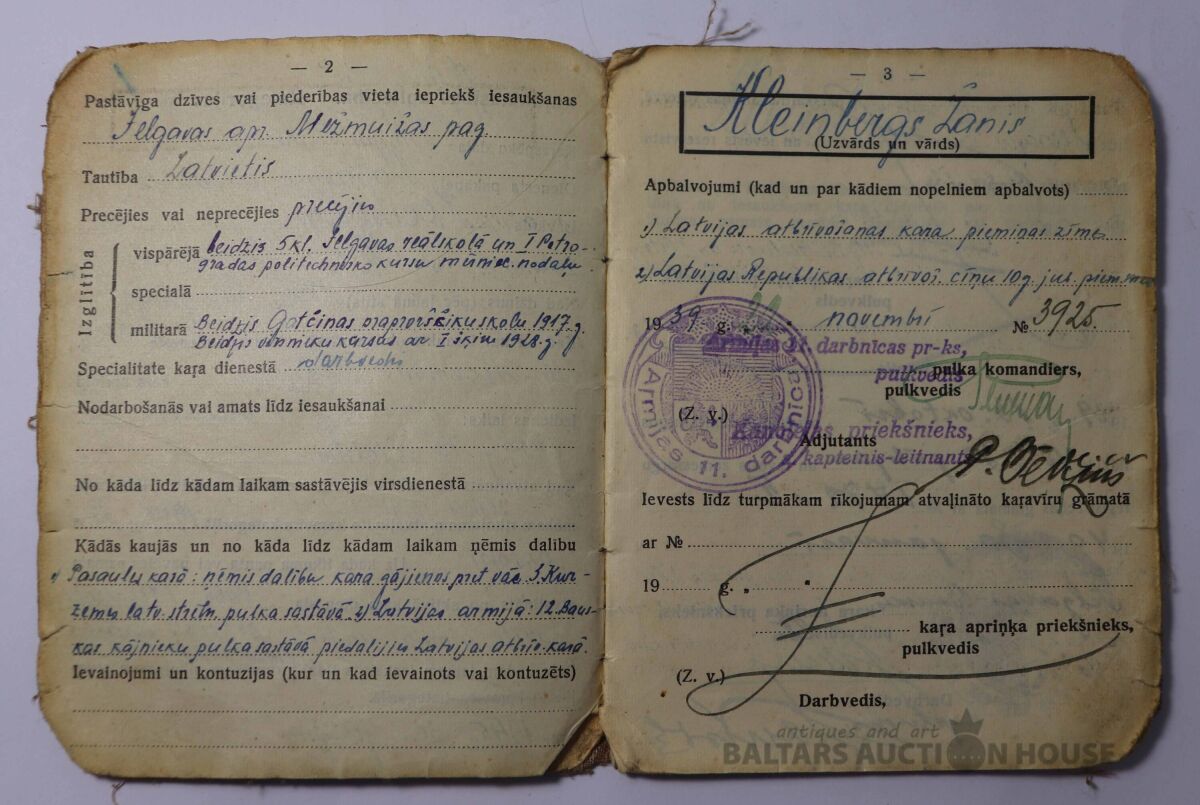 — 2 —
Pastāvīga dzīves vai piederības vieta iepriekš iesaukšanas
Jelgavas apr. Mežmuižas pag.
Tautība Latvietis
Precējies vai neprecējies precējies
Izglītība
vispārējā beidzis 5 kl. Jelgavas reālskolā un I Petro-
gradas politechnisko kursu mērniec. nodaļu
speciālā
militārā Beidzis Gatčinas praporščiku skolu 1917. g.
Beidzis virsnieku kursus ar I šķiru 1928. g.
Specialitate kaŗa dienestā darbvedis
Nodarbošanās vai amats līdz iesaukšanai
No kāda līdz kādam laikam sastāvējis virsdienestā
Kādās kaujās un no kāda līdz kādam laikam ņēmis dalību
1) Pasaules karā: ņēmis dalību kara gājienos pret vāc. 3. Kur-
zemes latv. strēln. pulka sastāvā. 2) Latvijas armijā: 12. Baus-
kas kājnieku pulka sastāvā piedalījies Latvijas atbrīv. karā.
Ievainojumi un kontuzijas (kur un kad ievainots vai kontuzēts)
— 3 —
Kleinbergs Žanis
(Uzvārds un vārds)
Apbalvojumi (kad un par kādiem nopelniem apbalvots)
1) Latvijas atbrīvošanas kara piemiņas zīme
2) Latvijas Republikas atbrīvoš. cīņu 10 g. jub. piem.
1939 g. novembrī № 3925.
Armijas 11. darbnīcas pr-ks,
pulkvedis
pulka komandiers,
pulkvedis
(Z. v.)
Armijas 11. darbnīca
Kancelejas priekšnieks,
Adjutants
kapteinis-leitnants
Ievests līdz turpmākam rīkojumam atvaļināto kaŗavīru grāmatā
ar №
19 g.
kaŗa apriņķa priekšnieks,
pulkvedis
(Z. v.)
Darbvedis,
antiques and art
BALTARS AUCTION HOUSE